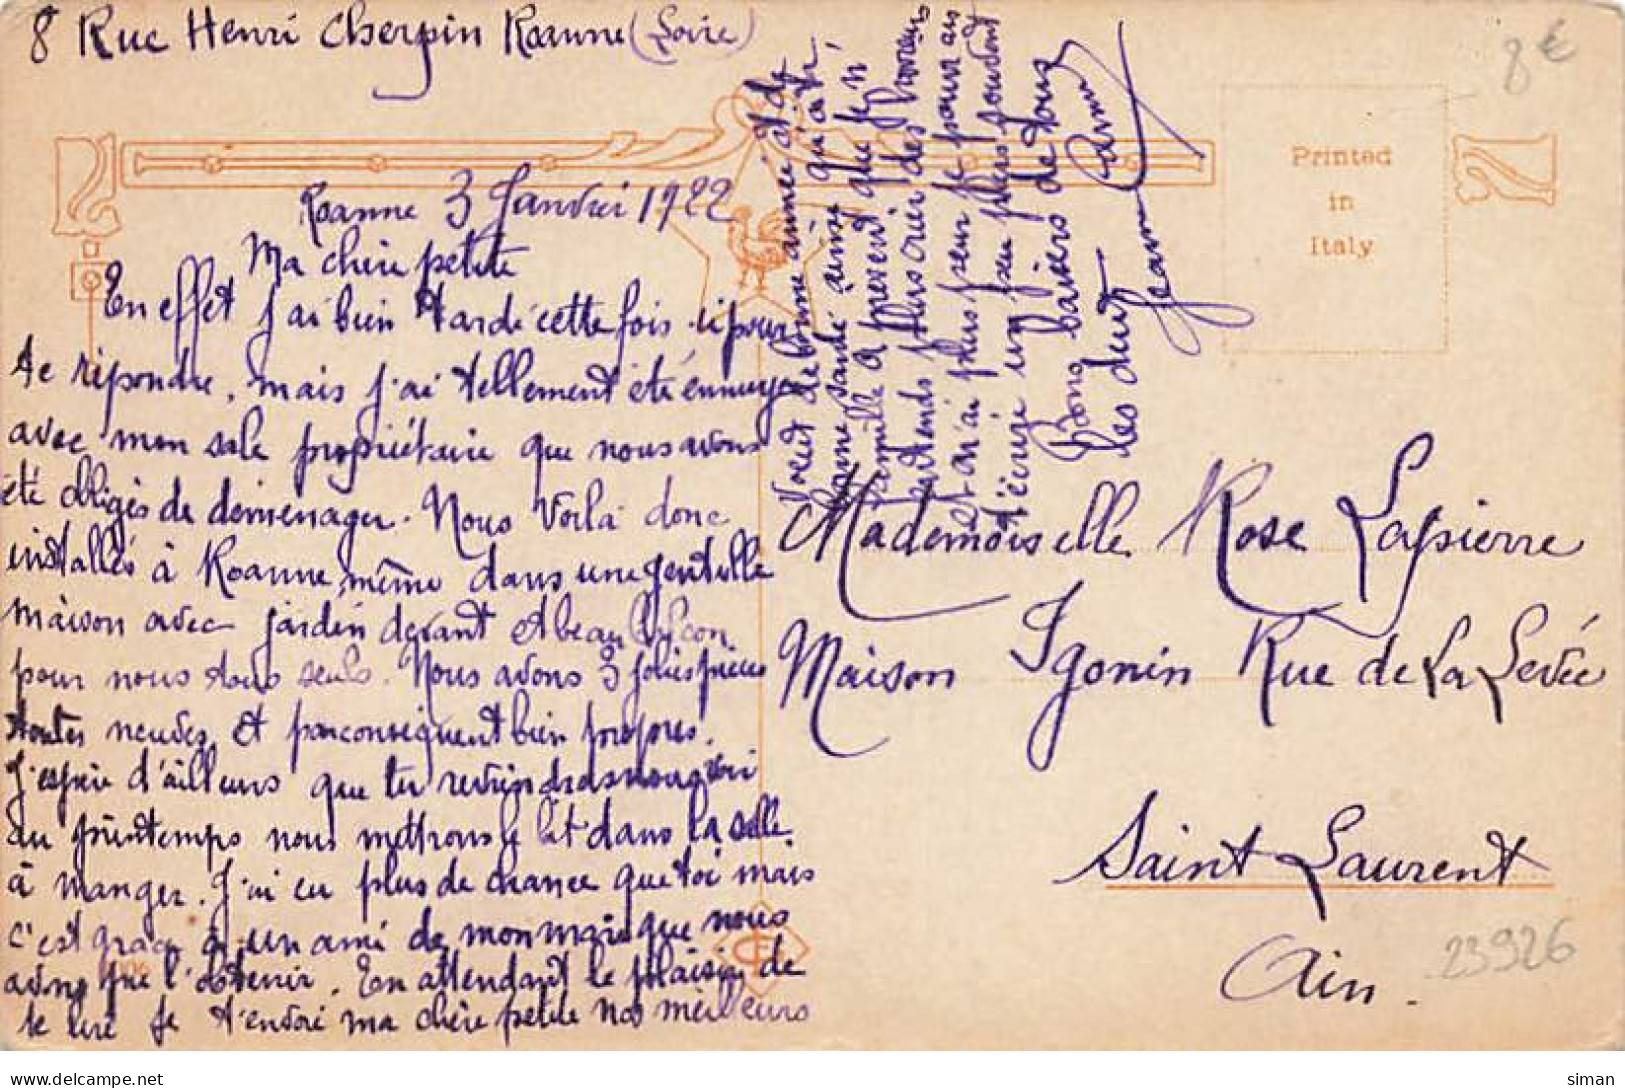 8 Rue Henri Cherpin Roanne (Loire)
Roanne 3 Janvier 1922
Ma chère petite
En effet j'ai bien tardé cette fois ci pour
te répondre, mais j'ai tellement été ennuyée
avec mon sale propriétaire que nous avons
été obligés de déménager. Nous voilà donc
installés à Roanne, même dans une gentille
maison avec jardin devant et beau balcon
pour nous tous seuls. Nous avons 3 jolies pièces
toutes neuves et par conséquent bien propres.
J'espère d'ailleurs que tu reviendras nous voir
au printemps nous mettrons le lit dans la salle
à manger. J'ai eu plus de chance que toi mais
c'est grace à un ami de mon mari que nous
avons pu l'obtenir. En attendant le plaisir de
te lire je t'envoie ma chère petite nos meilleurs
voeux de bonne année et de
bonne santé ainsi qu'à ta
famille à present que je n'
entends plus crier des
et n'ai plus peur je pourrais
t'écrire un peu plus souvent
Bons baisers de tous
les deux
Jeanne
Mademoiselle Rose Lapierre
Maison Igonin Rue de La Levée
Saint Laurent
Ain.
Printed
in
Italy
8€
23926
delcampe.net
siman